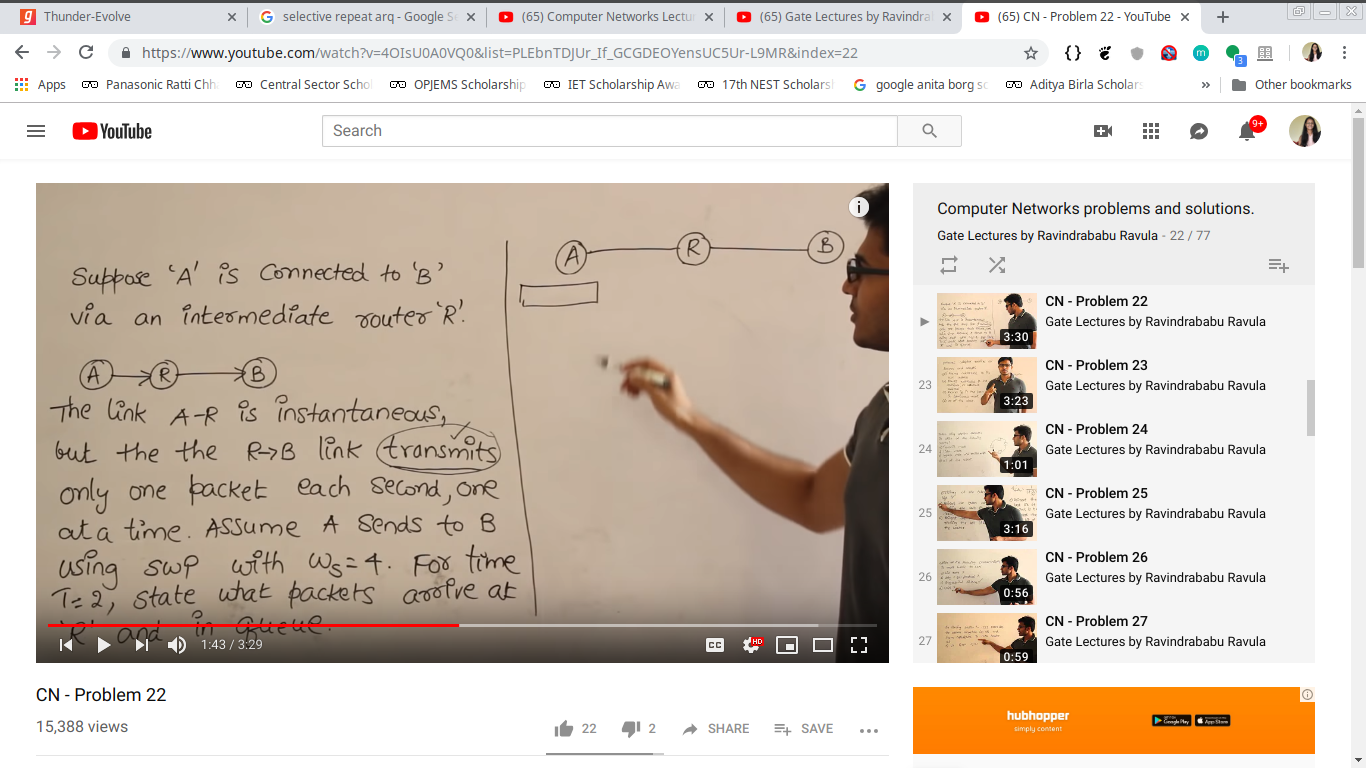 Thunder-Evolve
selective repeat arq - Google Se
(65) Computer Networks Lectu
(65) Gate Lectures by Ravindra
(65) CN - Problem 22 - YouTube
https://www.youtube.com/watch?v=4OIsU0A0VQ0&list=PLEbnTDJUr_If_GCGDEOYensUC5Ur-L9MR&index=22
3
Apps
Panasonic Ratti Chh
Central Sector Schol
OPJEMS Scholarship
IET Scholarship Awa
17th NEST Scholars
google anita borg sc
Aditya Birla Scholar
»
Other bookmarks
YouTube
Search
9+
Suppose 'A' is Connected to 'B'
via an intermediate router 'R'.
A R B
The link A-R is instantaneous,
but the the R→B link transmits
only one packet each second, one
at a time. Assume A sends to B
using swp with Ws = 4. For time
T=2, state what packets arrive at
'R' and in queue.
A R B
1:43 / 3:29
CC
HD
CN - Problem 22
15,388 views
22
2
SHARE
SAVE
Computer Networks problems and solutions.
Gate Lectures by Ravindrababu Ravula - 22 / 77
CN - Problem 22
Gate Lectures by Ravindrababu Ravula
3:30
23
CN - Problem 23
Gate Lectures by Ravindrababu Ravula
3:23
24
CN - Problem 24
Gate Lectures by Ravindrababu Ravula
1:01
25
CN - Problem 25
Gate Lectures by Ravindrababu Ravula
3:16
26
CN - Problem 26
Gate Lectures by Ravindrababu Ravula
0:56
27
CN - Problem 27
Gate Lectures by Ravindrababu Ravula
0:59
hubhopper
simply content
Google Play
App Store